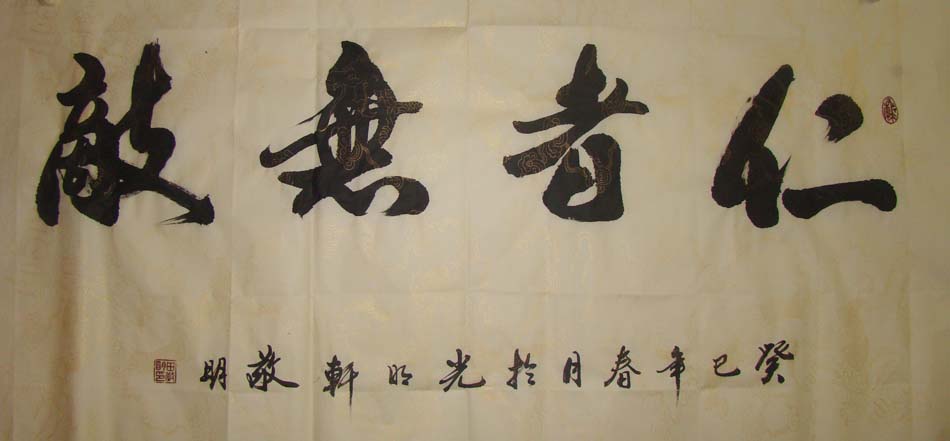 仁者無敵
癸巳年春月於光明軒敬明